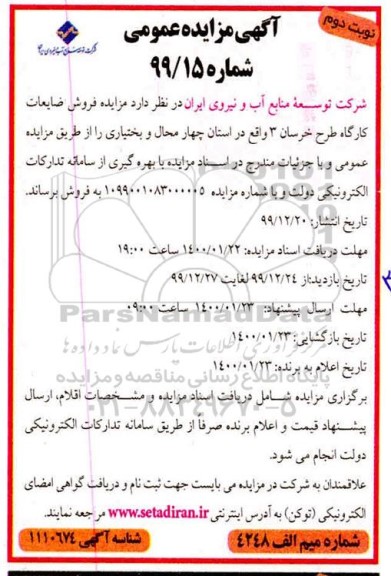 نوبت دوم
آگهی مزایده عمومی
شماره ۹۹/۱۵
شرکت توسعهٔ منابع آب و نیروی ایران در نظر دارد مزایده فروش ضایعات
کارگاه طرح خرسان ۳ واقع در استان چهار محال و بختیاری را از طریق مزایده
عمومی و با جزئیات مندرج در اسناد مزایده با بهره گیری از سامانه تدارکات
الکترونیکی دولت و با شماره مزایده ۱۰۹۹۰۰۱۰۸۳۰۰۰۰۰۵ به فروش برساند.
تاریخ انتشار: ۹۹/۱۲/۲۰
مهلت دریافت اسناد مزایده: ۱۴۰۰/۰۱/۲۲ ساعت ۱۹:۰۰
تاریخ بازدید:از ۹۹/۱۲/۲۴ لغایت ۹۹/۱۲/۲۷
مهلت ارسال پیشنهاد: ۱۴۰۰/۰۱/۲۳ ساعت ۰۹:۰۰
تاریخ بازگشایی: ۱۴۰۰/۰۱/۲۳
تاریخ اعلام به برنده: ۱۴۰۰/۰۱/۲۳
برگزاری مزایده شامل دریافت اسناد مزایده و مشخصات اقلام، ارسال
پیشنهاد قیمت و اعلام برنده صرفاً از طریق سامانه تدارکات الکترونیکی
دولت انجام می شود.
علاقمندان به شرکت در مزایده می بایست جهت ثبت نام و دریافت گواهی امضای
الکترونیکی (توکن) به آدرس اینترنتی www.setadiran.ir مرجعه نمایند.
شماره میم الف ۴۲۴۸
شناسه آگهی ۱۱۱۰۶۷۴
ParsNamadData
پایگاه اطلاع رسانی مناقصه و مزایده
۰۲۱-۸۸۳۴۹۶۷۰-۵